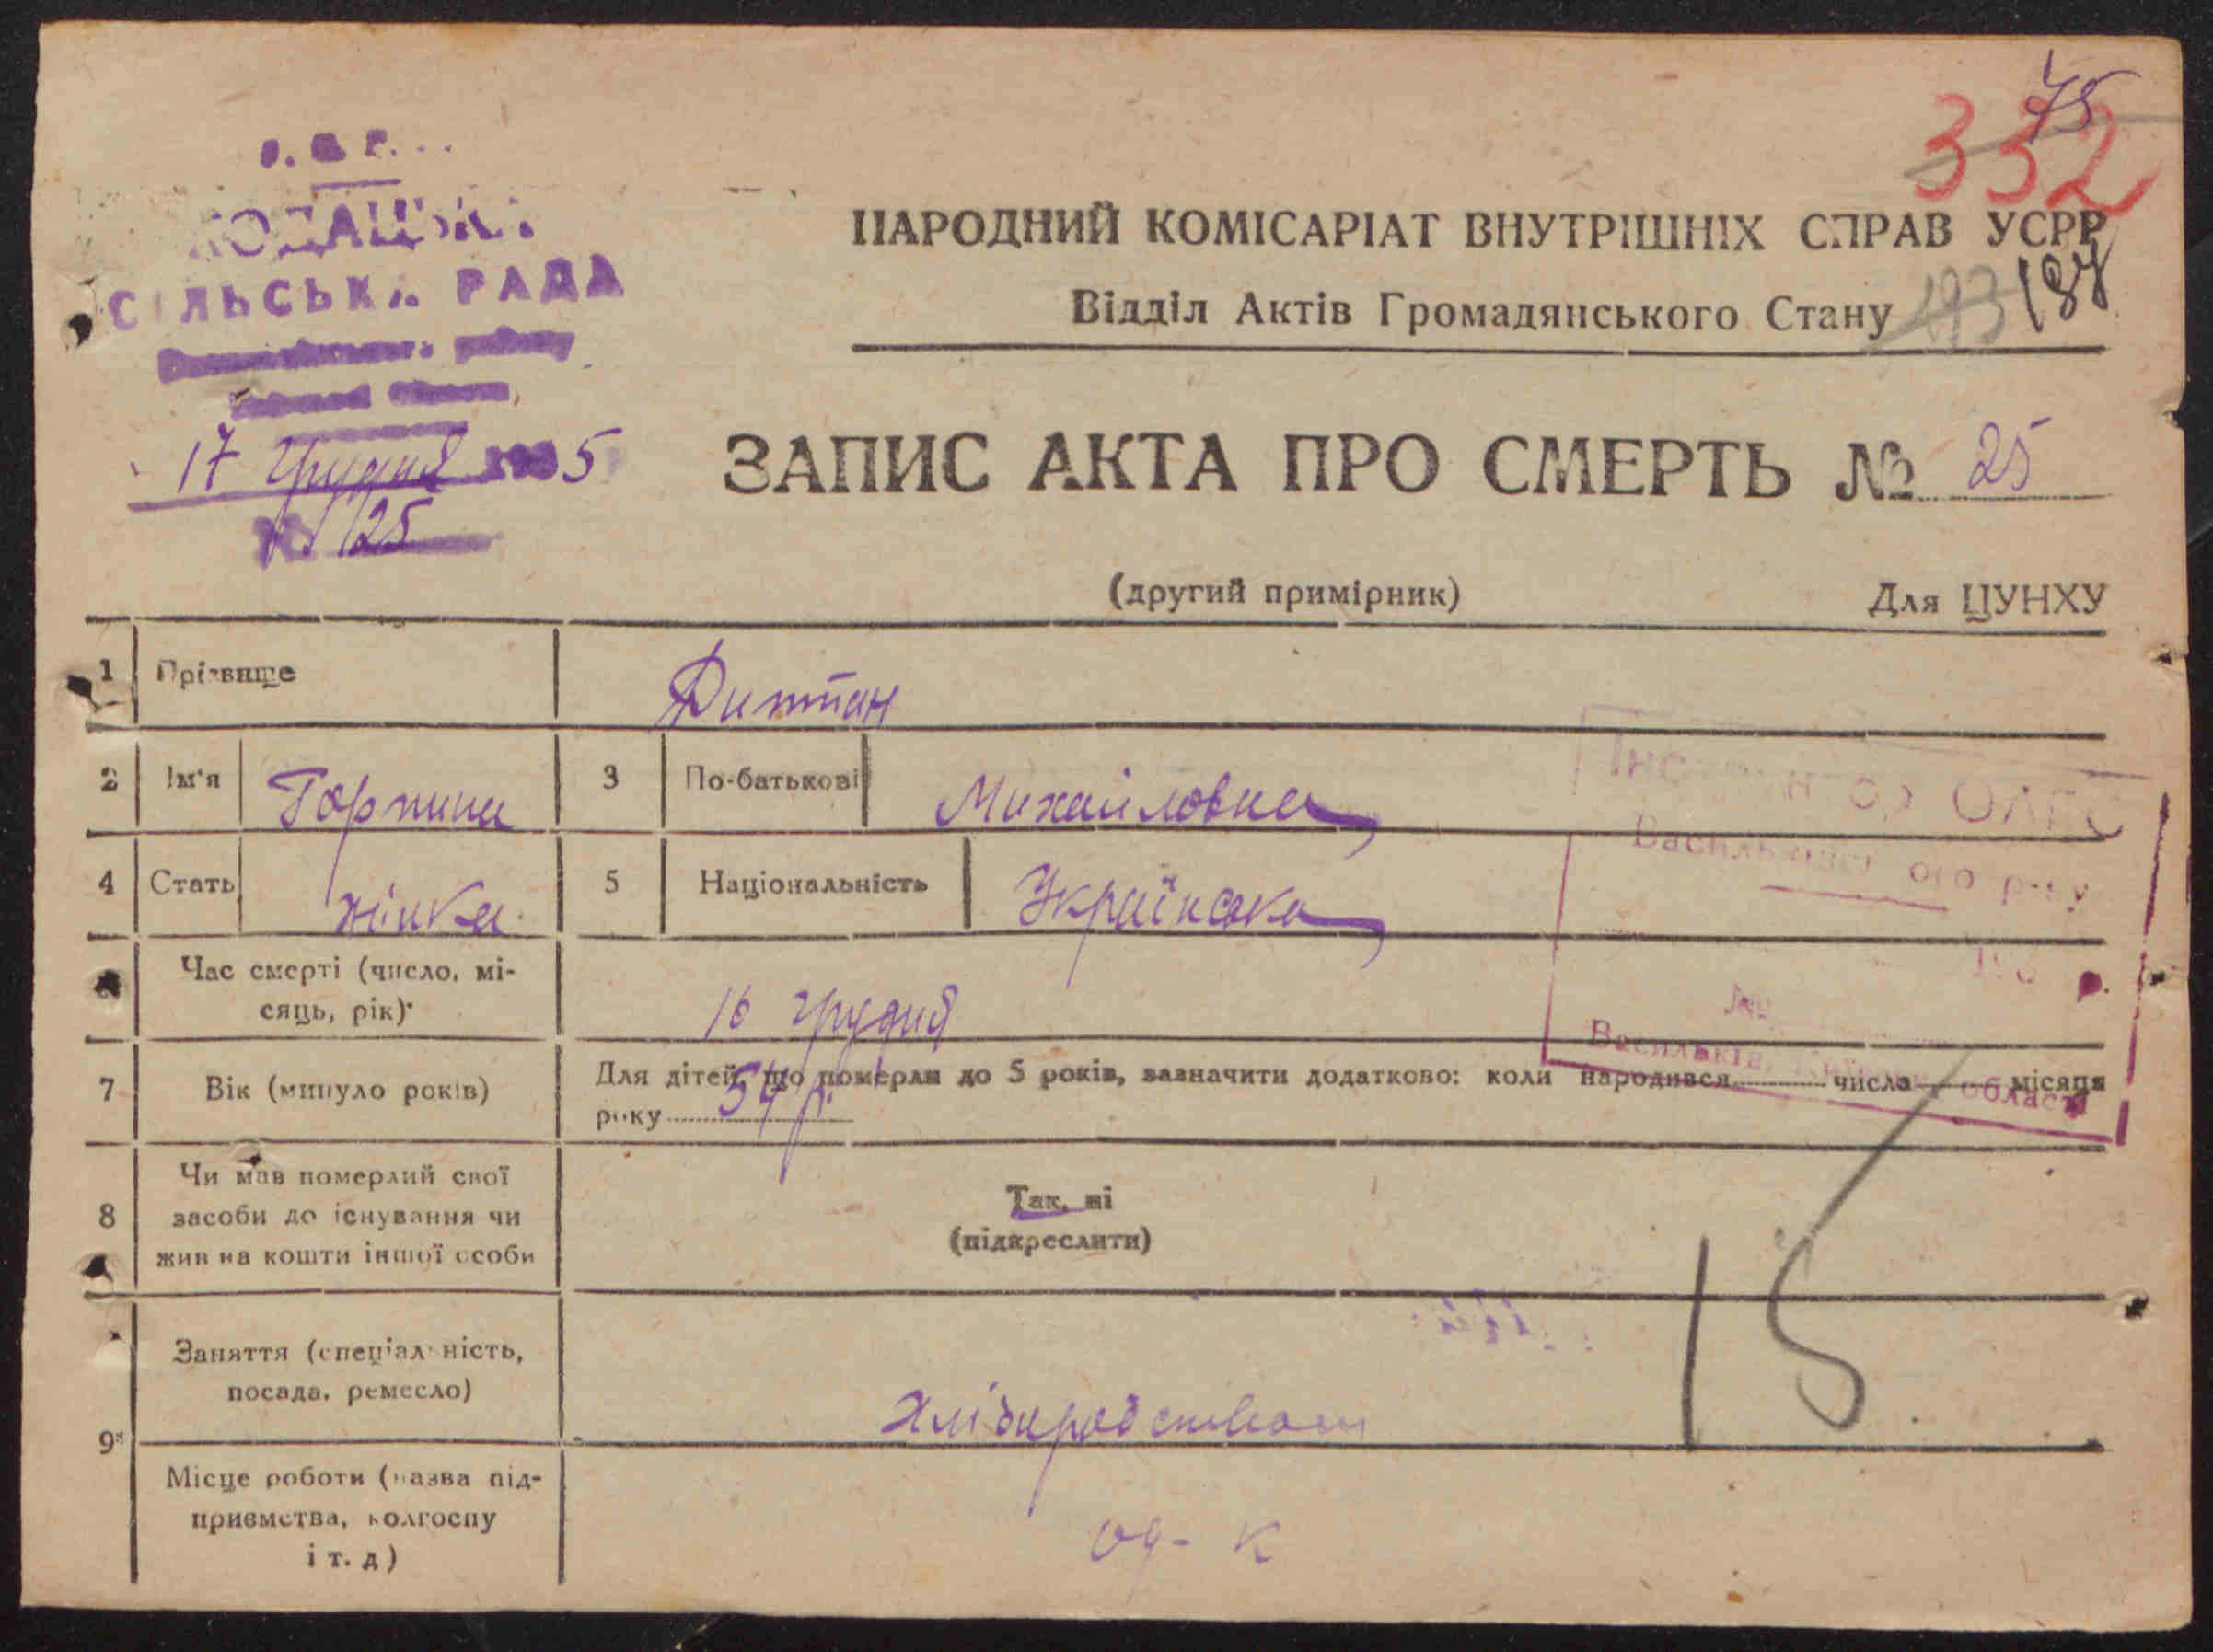 75
332
СІЛЬСЬКА РАДА
17 грудня 1935
№ 125
НАРОДНИЙ КОМІСАРІАТ ВНУТРІШНІХ СПРАВ УСРР
Відділ Актів Громадянського Стану 193 187
ЗАПИС АКТА ПРО СМЕРТЬ № 25
(другий примірник) Для ЦУНХУ
1 Прізвище
2 Ім'я Горпина 3 По-батькові Михайловна
4 Стать жінка 5 Національність Українська
Інспектор ОАГС
Васильківського р-ну
№
Васильків, Київськ. області
Час смерті (число, мі-
сяць, рік) 16 грудня
7 Вік (минуло років) Для дітей, що померли до 5 років, зазначити додатково: коли народився числа місяця
року 54 р.
8 Чи мав померлий свої
засоби до існування чи
жив на кошти іншої особи
Так, ні
(підкреслити)
15
9 Заняття (спеціальність,
посада, ремесло)
Місце роботи (назва під-
приємства, колгоспу
і т. д)
од- к